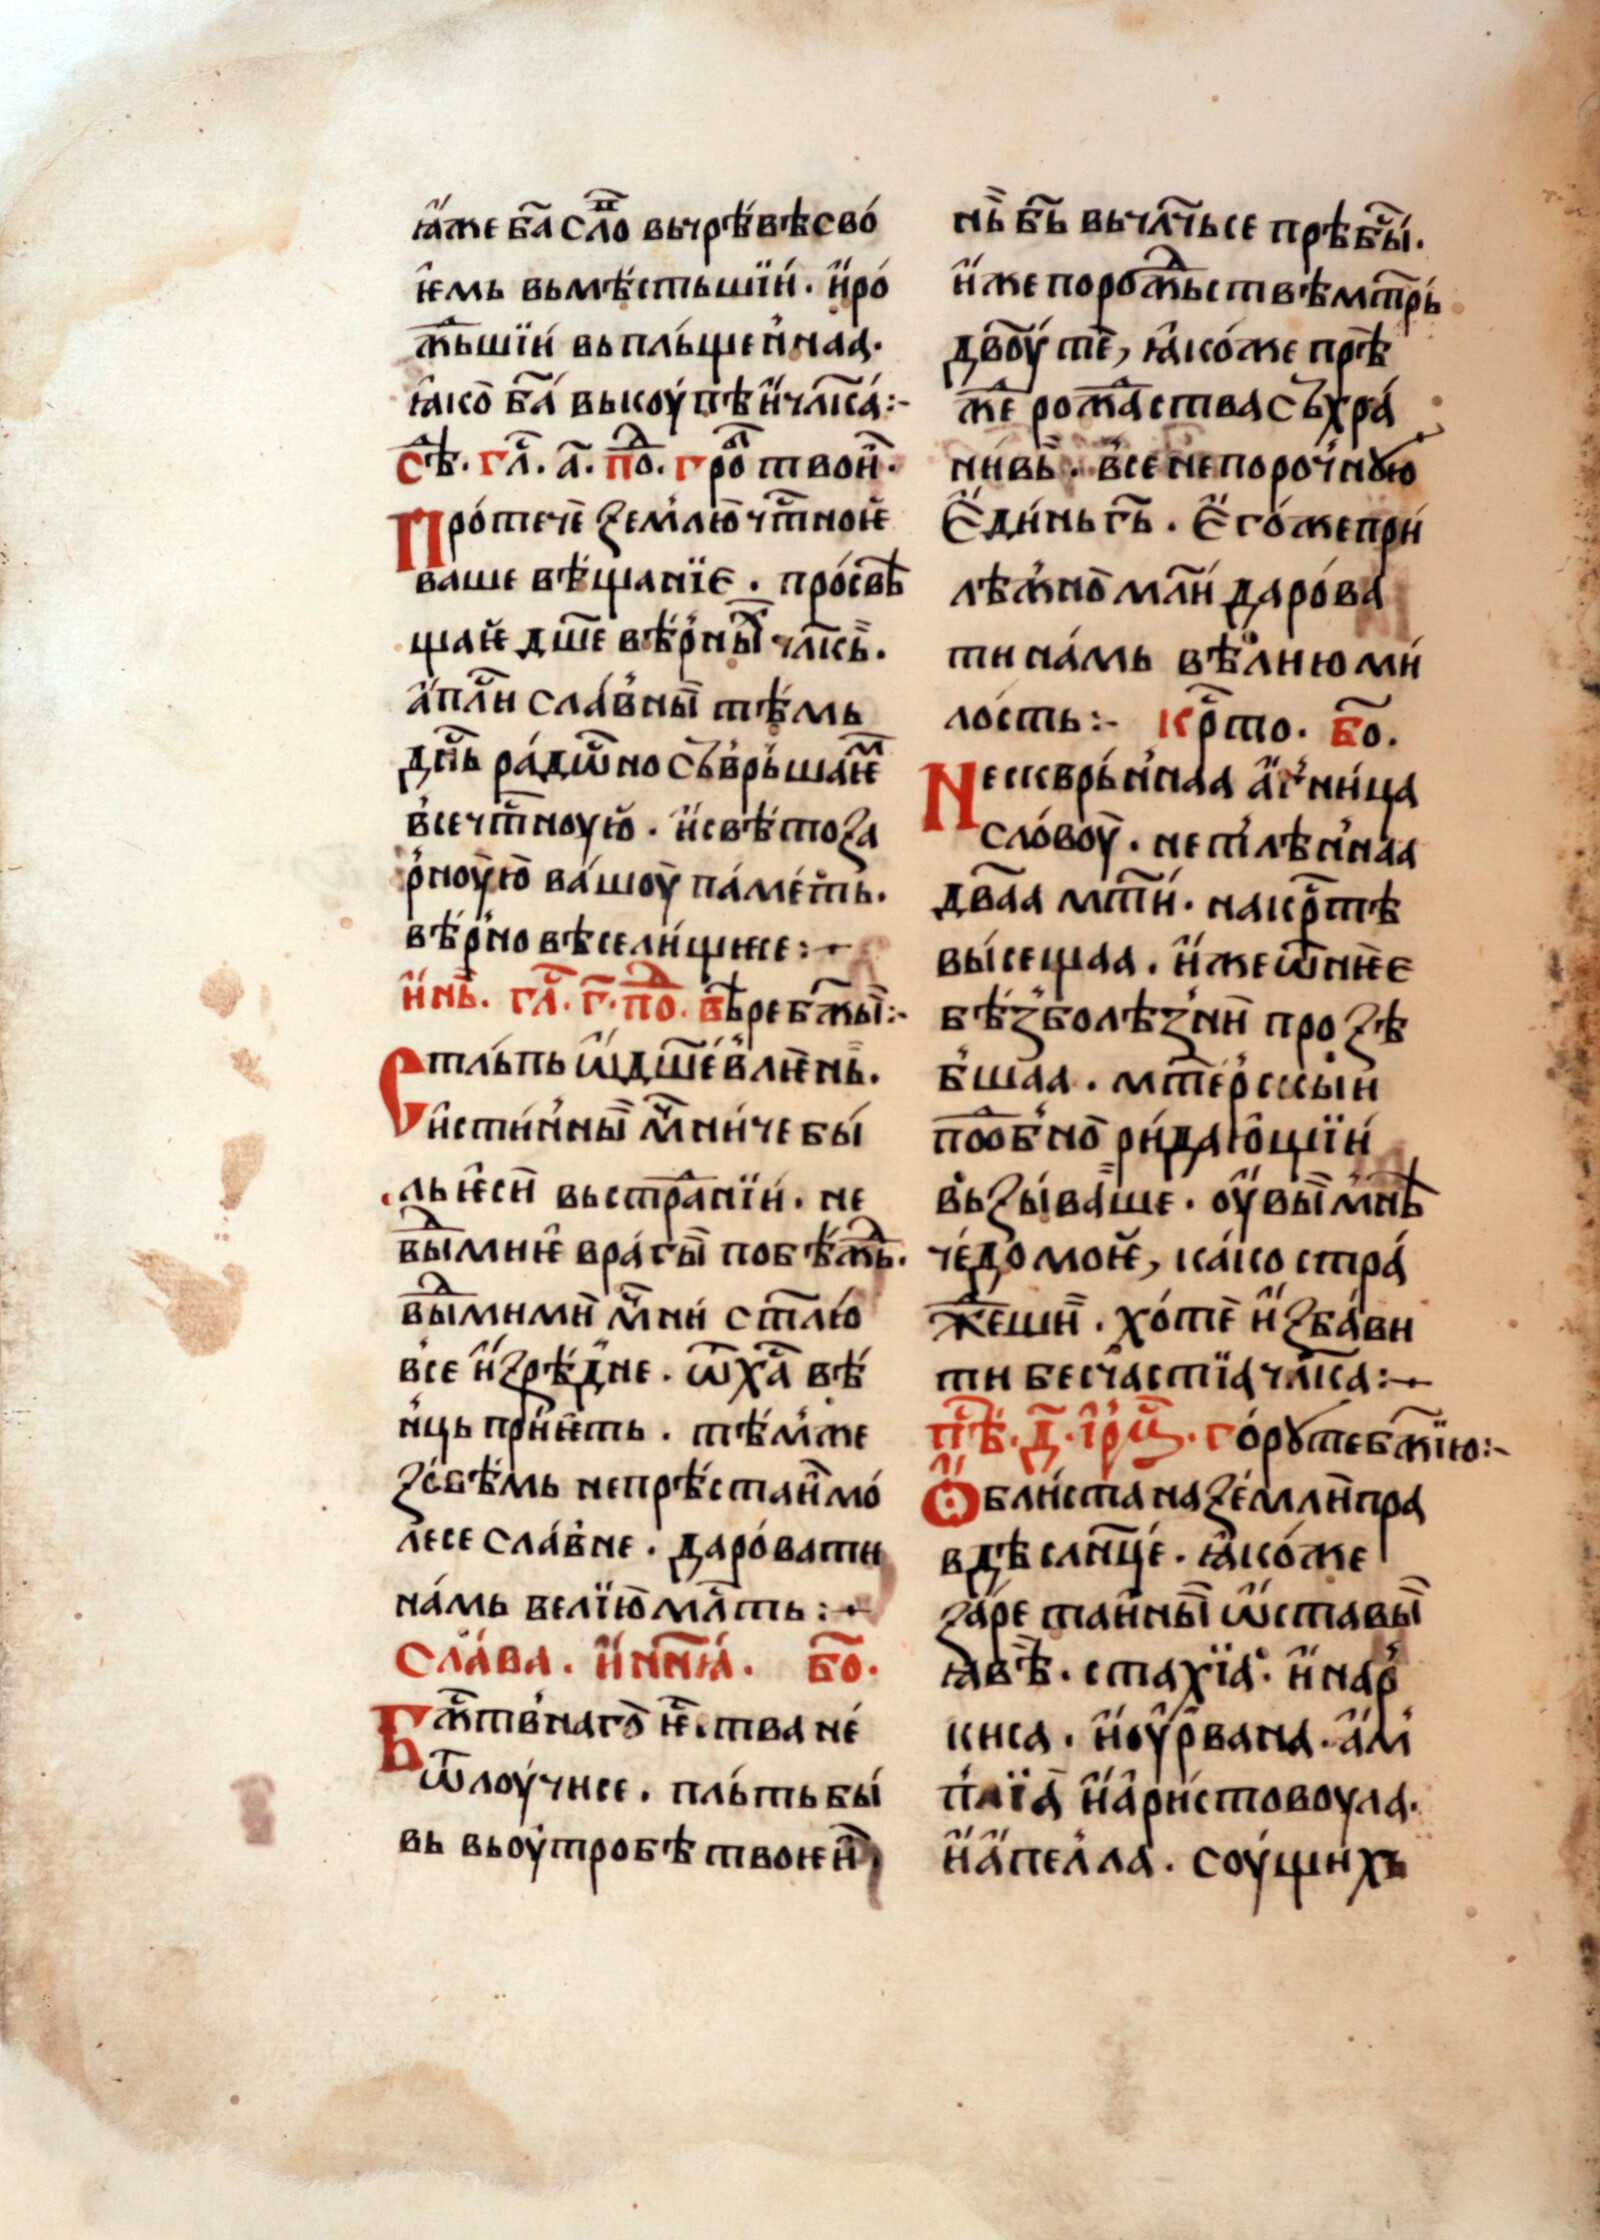 ꙗ҆́же б҃а сло́ⷡ вьчрѣ́вѣсво́
ѥ҆мь вьмѣ́стьшїи́. и҆ро́
жⷣьшїи́ вьпль́щен҆наа.
ꙗ҆ко б҃а́ вькоу́пѣ и҆чл҃ка́:-
сѣⷣ. глⷭ. а҃. поⷣ. гроⷠ твои҆.
Про́тече землю чⷭ҇тноѥ
ваше вѣ́щанїє. про́свѣ
щаѥ дш҃е вѣ́рны чл҃кь.
а҆пⷭ҇ли сла́в҆ны тѣ́мь
дн҃ь ра́дⷭ҇ѡно съвръ́шаѥⷨ
в҆сечⷭ҇тноую. и҆свѣ́тоза
р҆ноую ва́шоу па́меть.
вѣ́р҆но вѣселѝщисе:-
и҆нь. глⷭ. г҃. поⷣ. въ̀ребжⷭ҇ы:-
Стль́пь ѡ҆дш҃е́влѥнь.
и҆стѝн҆ны мⷱ҇ниче бы́
льѥ҆сѝ вьстрⷭ҇анїи́. не
ви́ⷣмниѥ враѓы побѣжⷣь.
ви́ⷣмими мⷱ҇ни с тл҃ю
в҆се и҆зрѣ́д҆не. ѿх҃а вѣ́
н҆ць прїѥть. тѣ́м҆же
зсвѣ́мь непрѣ́стаⷩ҇мо́
лесе сла́в҆не. даро́вати
на́мь велїю млⷭ҇ть:-
Сла́ва. и҆нн҃ꙗ. бо҃.
Бжⷭ҇тв҆наго ѥⷭ҇.тва не́
ѿлоу́чисе. пль́тьбы́
вь вьоу́тробѣ твоѥи҆
нь бь҃ вьчл҃чьсе прѣбы́ⷭ.
и҆же порожⷣьствѣмт҃рь
дв҃оу́ те, ꙗ҆ко́же прѣ
жⷣе рожⷣаства съхра́
ни́вь. в҆сенепоро́ч҆ную
Є҆ди́нь г҃ь. Є҆го́жепри
лѣж҆но мл҃и даро́ва
ти на́мь вѣ́лию ми́
лость:- крⷭ҇то. бо҃.
Нескврь́н҆наа а҆́г҆ни́ца
сло́воу. нетлѣ́н҆наа
дв҃аа мт҃и. накрⷭ҇тѣ
вы́сещаа. и҆́же ѿнѥє
бѣ́з҆болѣ́з҆ни прозѣ
б҆шаа. мт҃е́р҆скыи
поⷣоб҆но ри́даю́щїи
вьзы́ва́ше. оу҆вы м҆нѣ
че́до моѥ, ка́ко стра́
жⷣеши. хо́те и҆зба́ви
ти бесча́стїа чл҃ка:-
пѣⷭ. д҃. і҆рмⷭ. го́рутебжⷭ҇їю:-
Ѻ҆бли́ста на зе́мли пра
в҆дѣ сл҃нце́. ꙗ҆ко́же
за́ре таи҆ны ѡ҆ставы
ꙗвѣ. стахїа. и҆нар҆
киса. и҆оу҆р҆вана. а҆м҆
п҆лїа и҆а҆ри́стовоула.
и҆а҆пел҆ла. соу́щихь